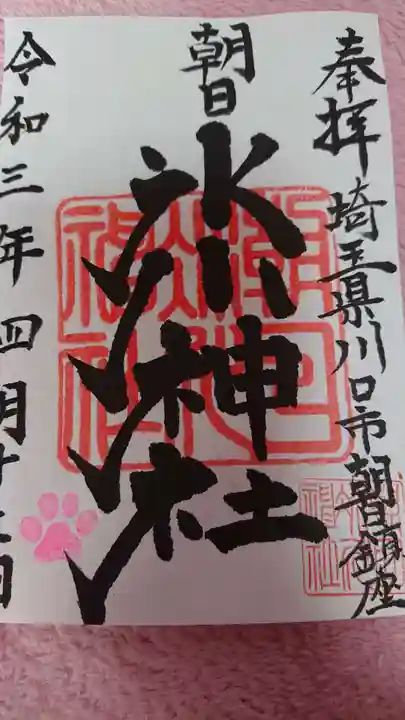 奉拝 埼玉県川口市朝日鎮座
朝日
氷川神社
令和三年四月十三日